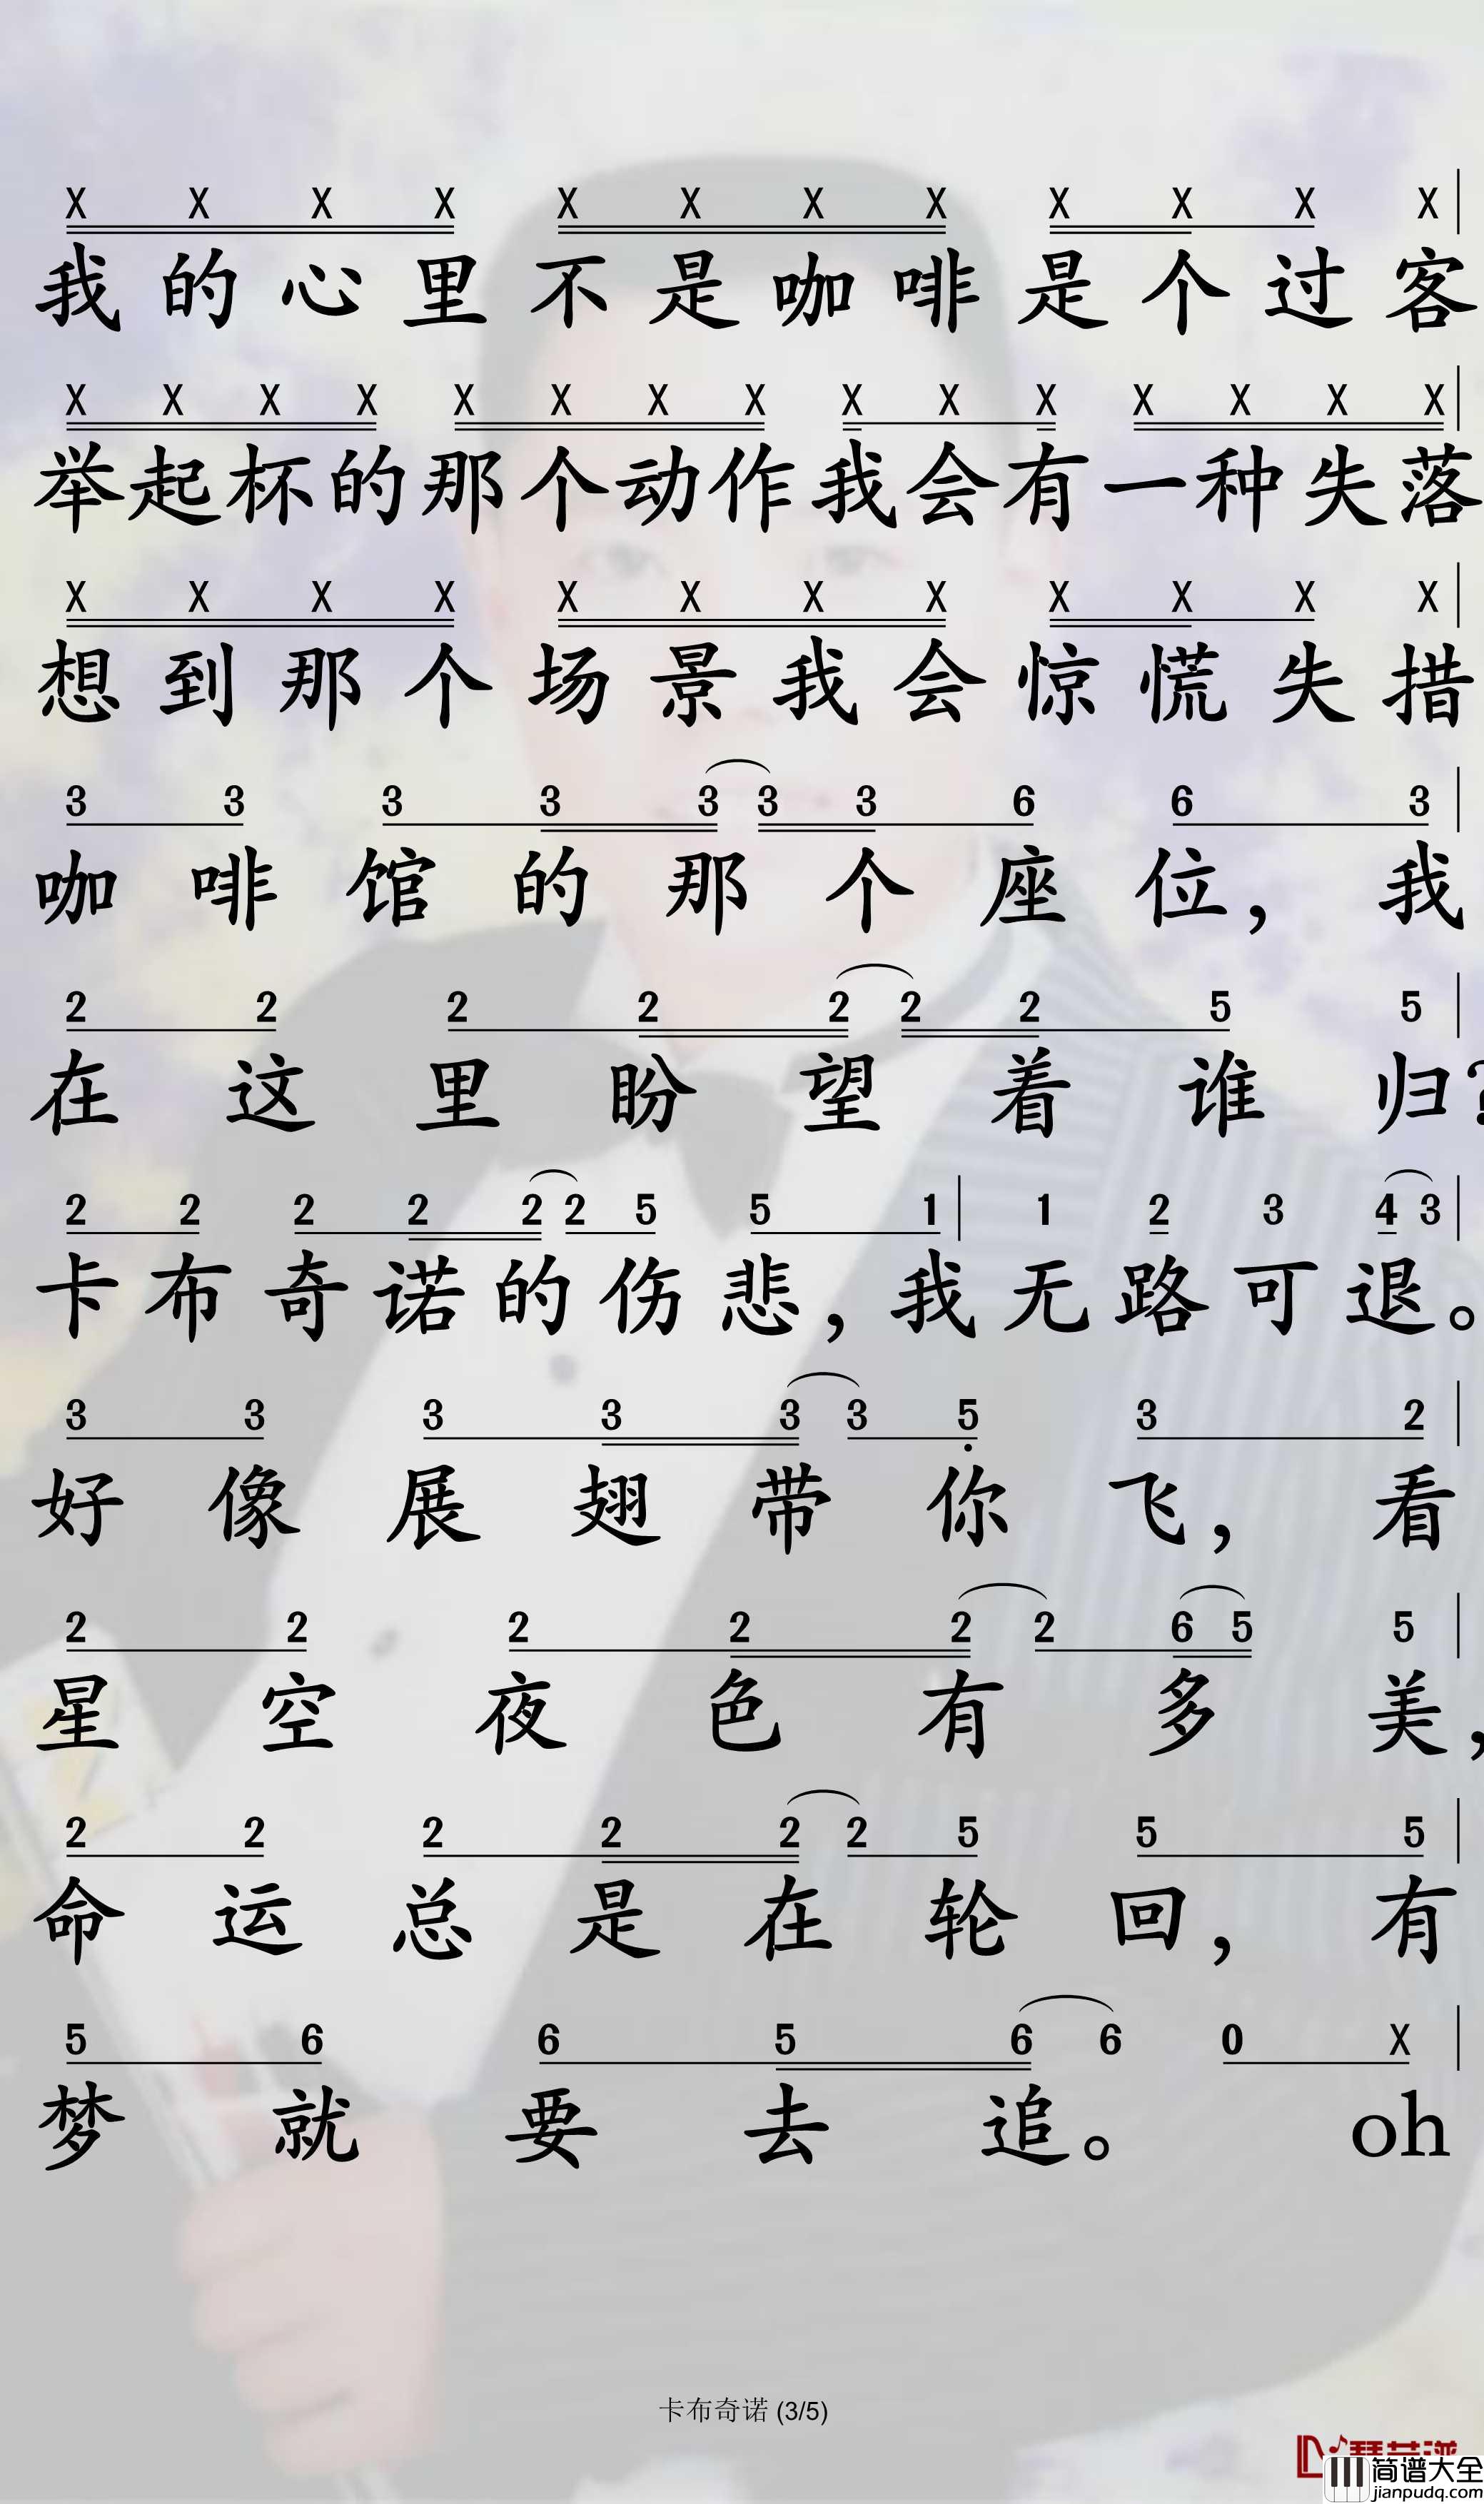 X X X X X X X X X X X X
我的心里不是咖啡是个过客
X X X X X X X X X X X X X X X
举起杯的那个动作我会有一种失落
X X X X X X X X X X X X
想到那个场景我会惊慌失措
3 3 3 3 3 3 3 6 6 3
咖啡馆的那个座位，我
2 2 2 2 2 2 2 5 5
在这里盼望着谁归？
2 2 2 2 2 2 5 5 1 1 2 3 4 3
卡布奇诺的伤悲，我无路可退。
3 3 3 3 3 3 5 3 2
好像展翅带你飞，看
2 2 2 2 2 2 6 5 5
星空夜色有多美，
2 2 2 2 2 2 5 5 5
命运总是在轮回，有
5 6 6 5 6 6 0 X
梦就要去追。 oh
卡布奇诺 (3/5)
简谱大全
jianpudq.com